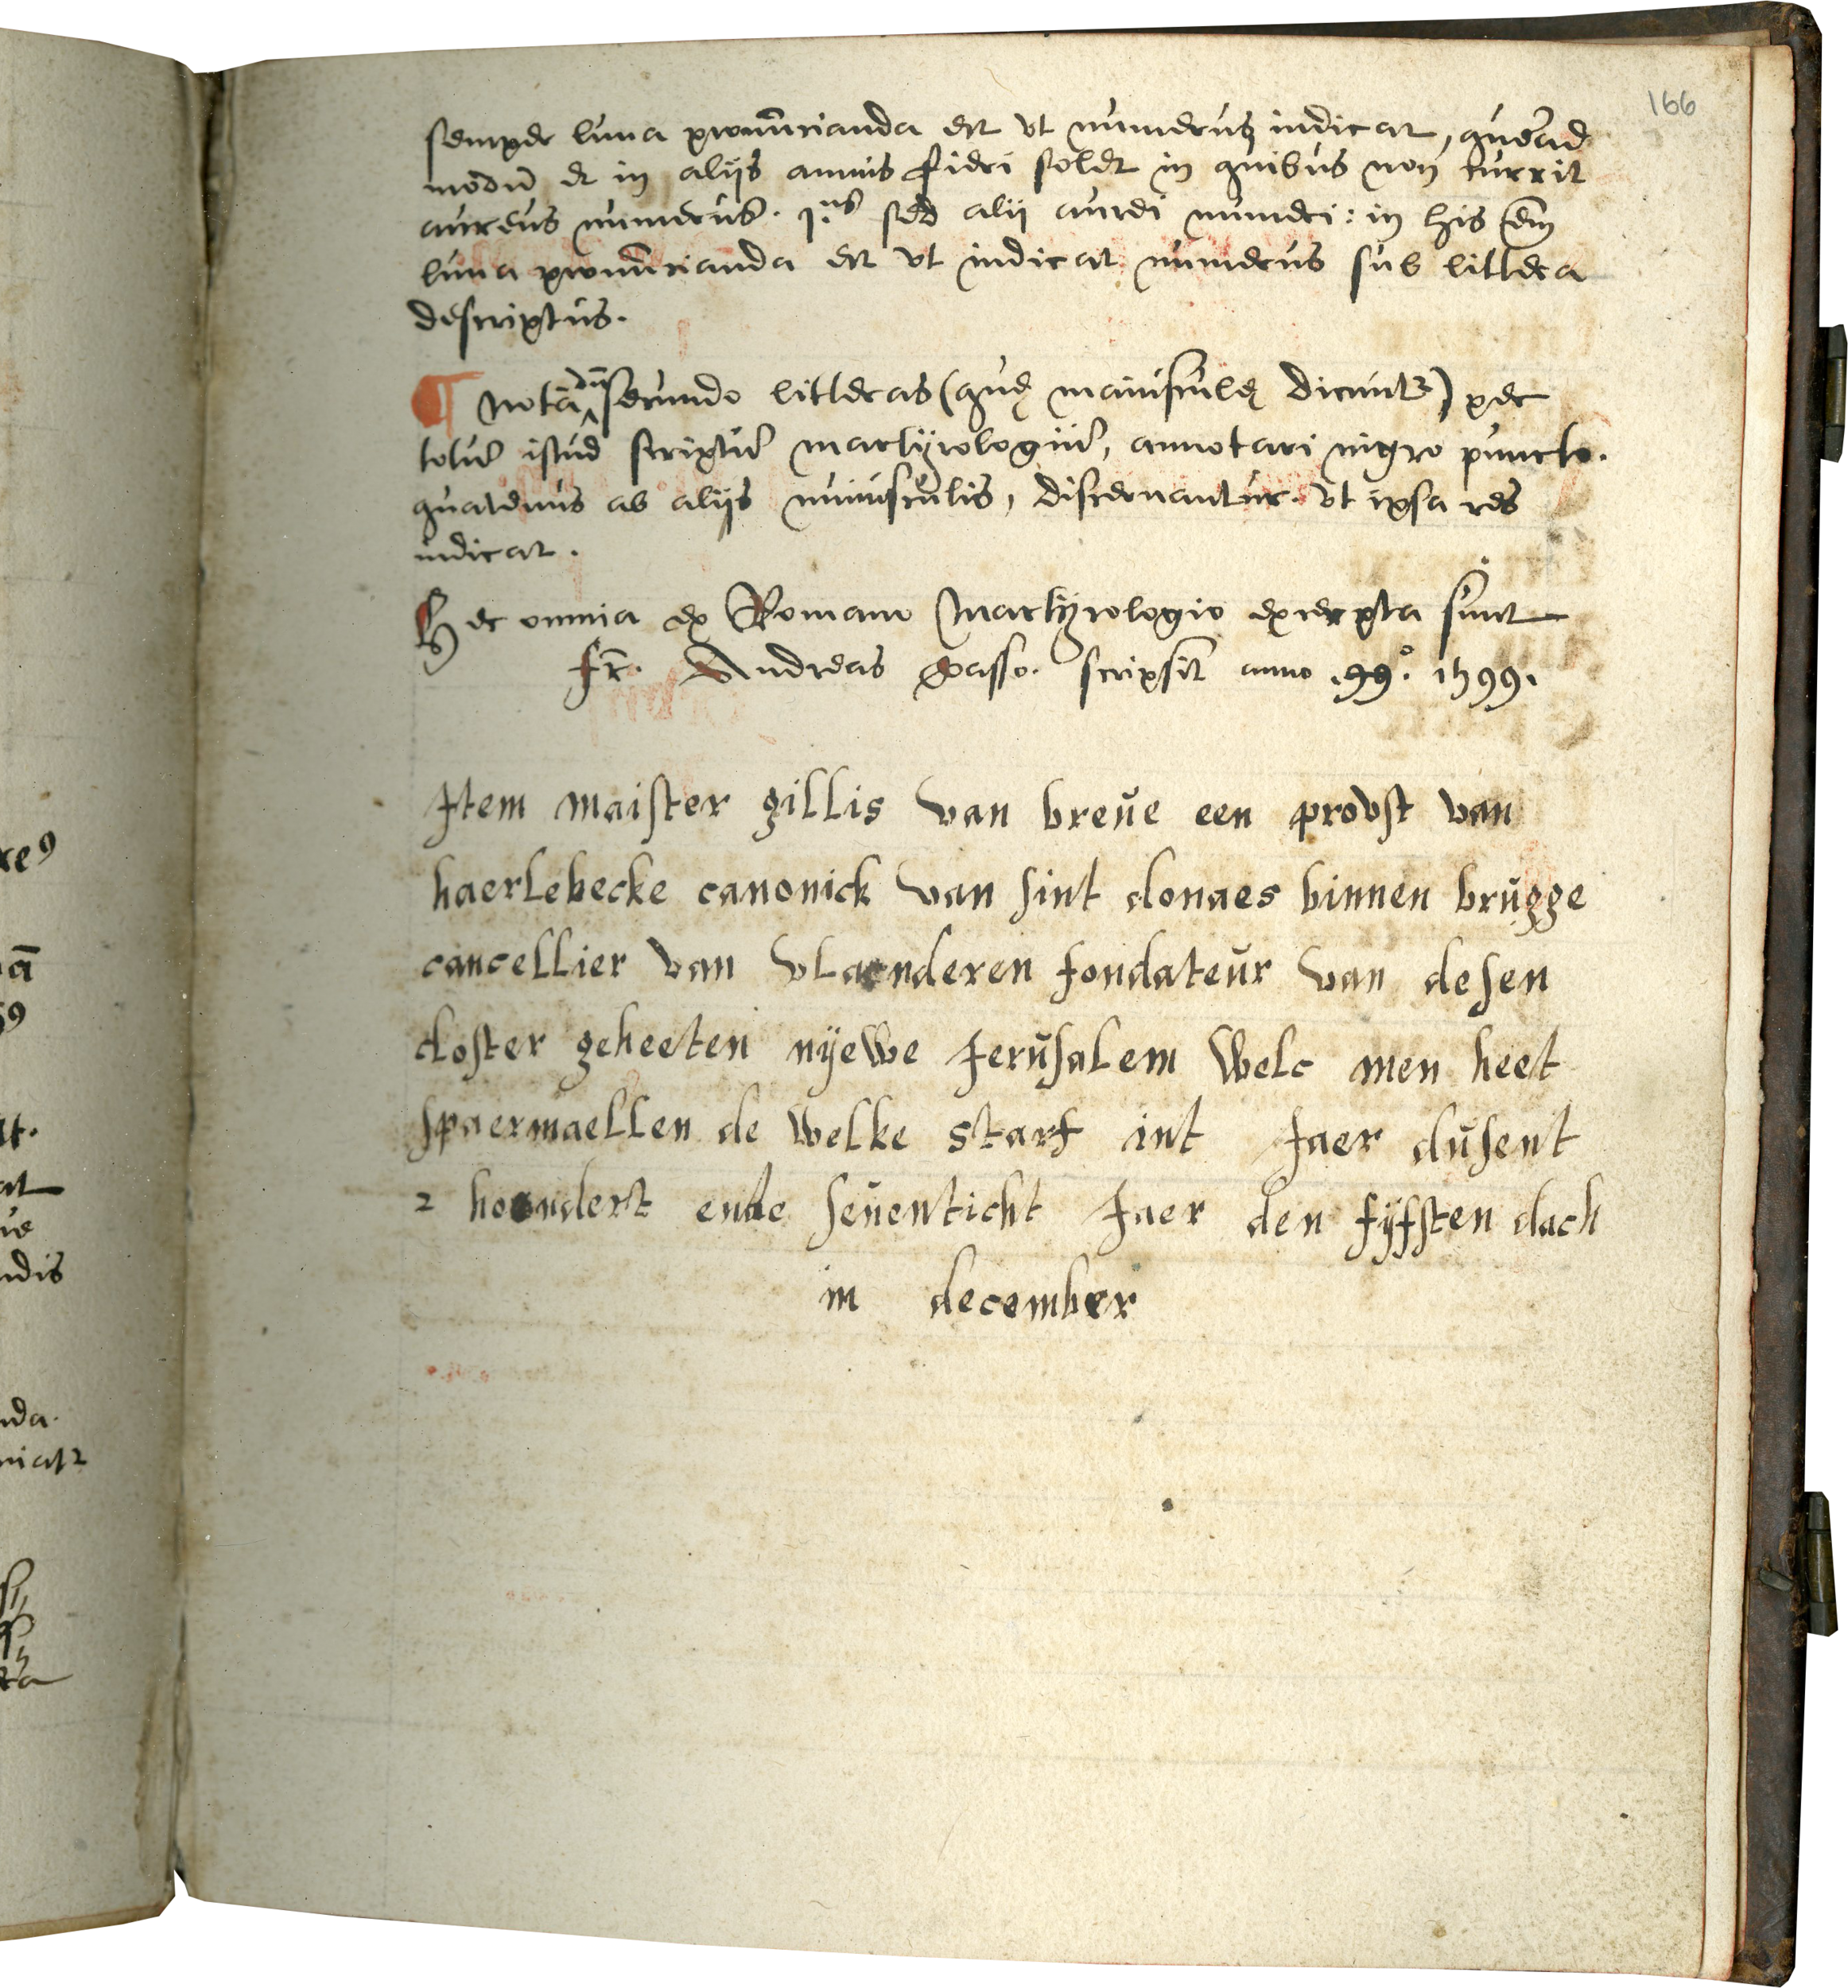 166
semper luna pronūcianda est vt numerus indicat, quēad
modū et in alijs annis fieri solet in quibus non currit
aureus numerus. 1.us sed alii aurei numeri: in his em̄
luna pronūcianda est vt indicat numerus sub littera
descriptus.
¶ Nota secundo litteras (quę maiusculę dicunt) per
totū istud scriptū martyrologiū, annotari nigro puncto.
quatenus ab alijs minusculis, discernantur. vt ipsa res
indicat.
Hec omnia ex Romano Martyrologio excerpta sunt
fr. Andreas Gasso. scripsit anno .99.° 1599.
Item maister gillis van breue een provst van
haerlebecke canonick van sint donaes binnen brugge
cancellier van vlaenderen fondateur van desen
closter geheeten nyewe Jerusalem welc men heet
spaermaellen de welke starf int Jaer dusent
2 hondert ende seuenticht Jaer den fyfsten dach
in december
xe9
ā
59
t.
at
ue
ndis
nda.